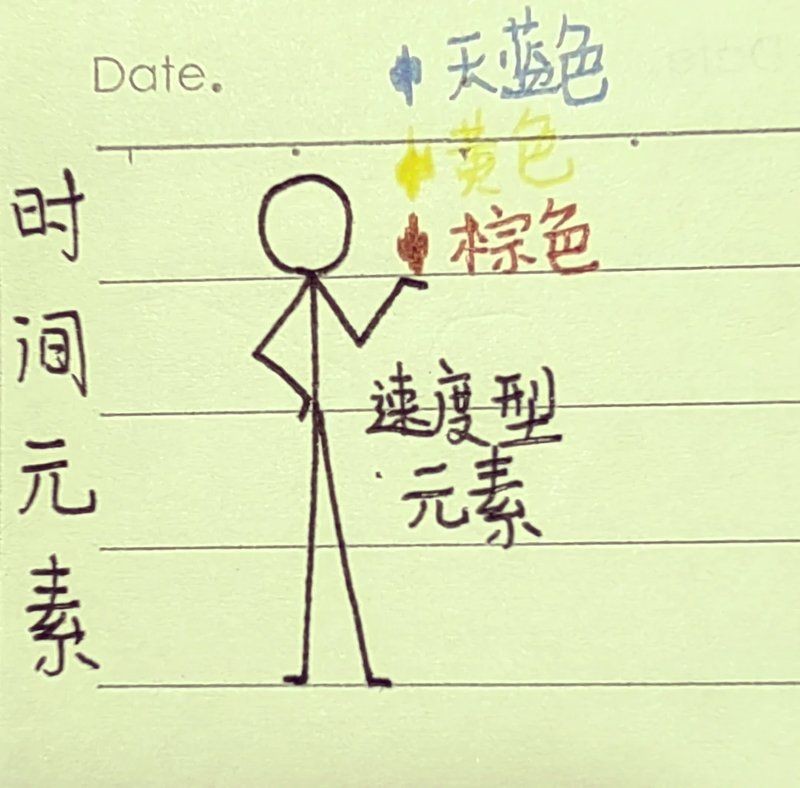 Date.
天蓝色
黄色
棕色
时间元素
速度型
元素